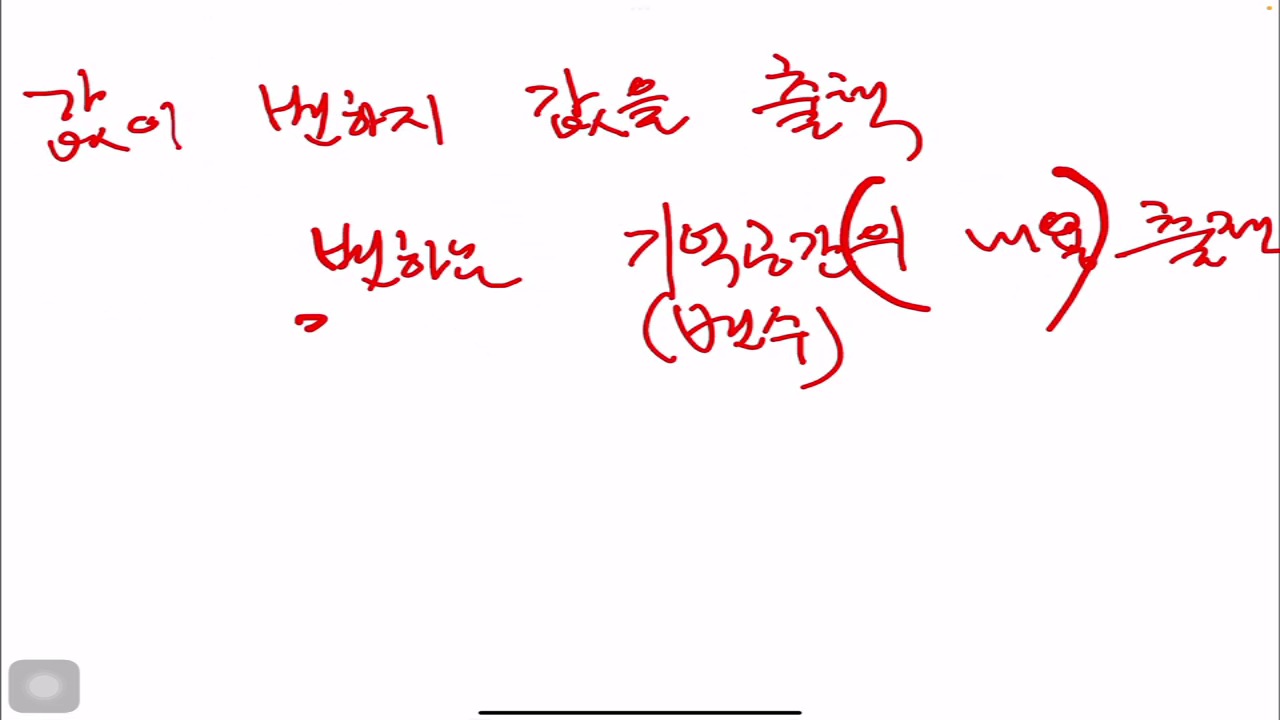 값이 변하지 값을 출력
변하는 기억공간(의 내용) 출력
(변수)